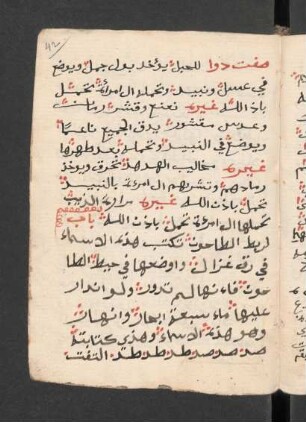 42
صفت دوا للحبل يؤخد بول جمل ويوضع
في عسل ونبيد وتحمله الامرأة تحبل
باذ الله غيره نعنع وقشر رمان
وعدس مقشور يدق الجميع ناعما
ويوضع في النبيد وتحمله بعد طهرها
غيره مخاليب الهدهد تحرق ويوخد
رمادهم وتشربهم الامرئة بالنبيد
تحبل باذن الله غيره مرارة الديب
تحملها الامرئة تحبل باذن الله باب
لربط الطاحون تكتب هذه الاسماء
في رق غزال واوضعها في حيط الطا
حون فانها لم تدور ولو اندار
عليها ماء سبعة ابحار وانهار
وهو هذه الاسماء وهذي كتابته
صد صد صد طد طد طد التفت